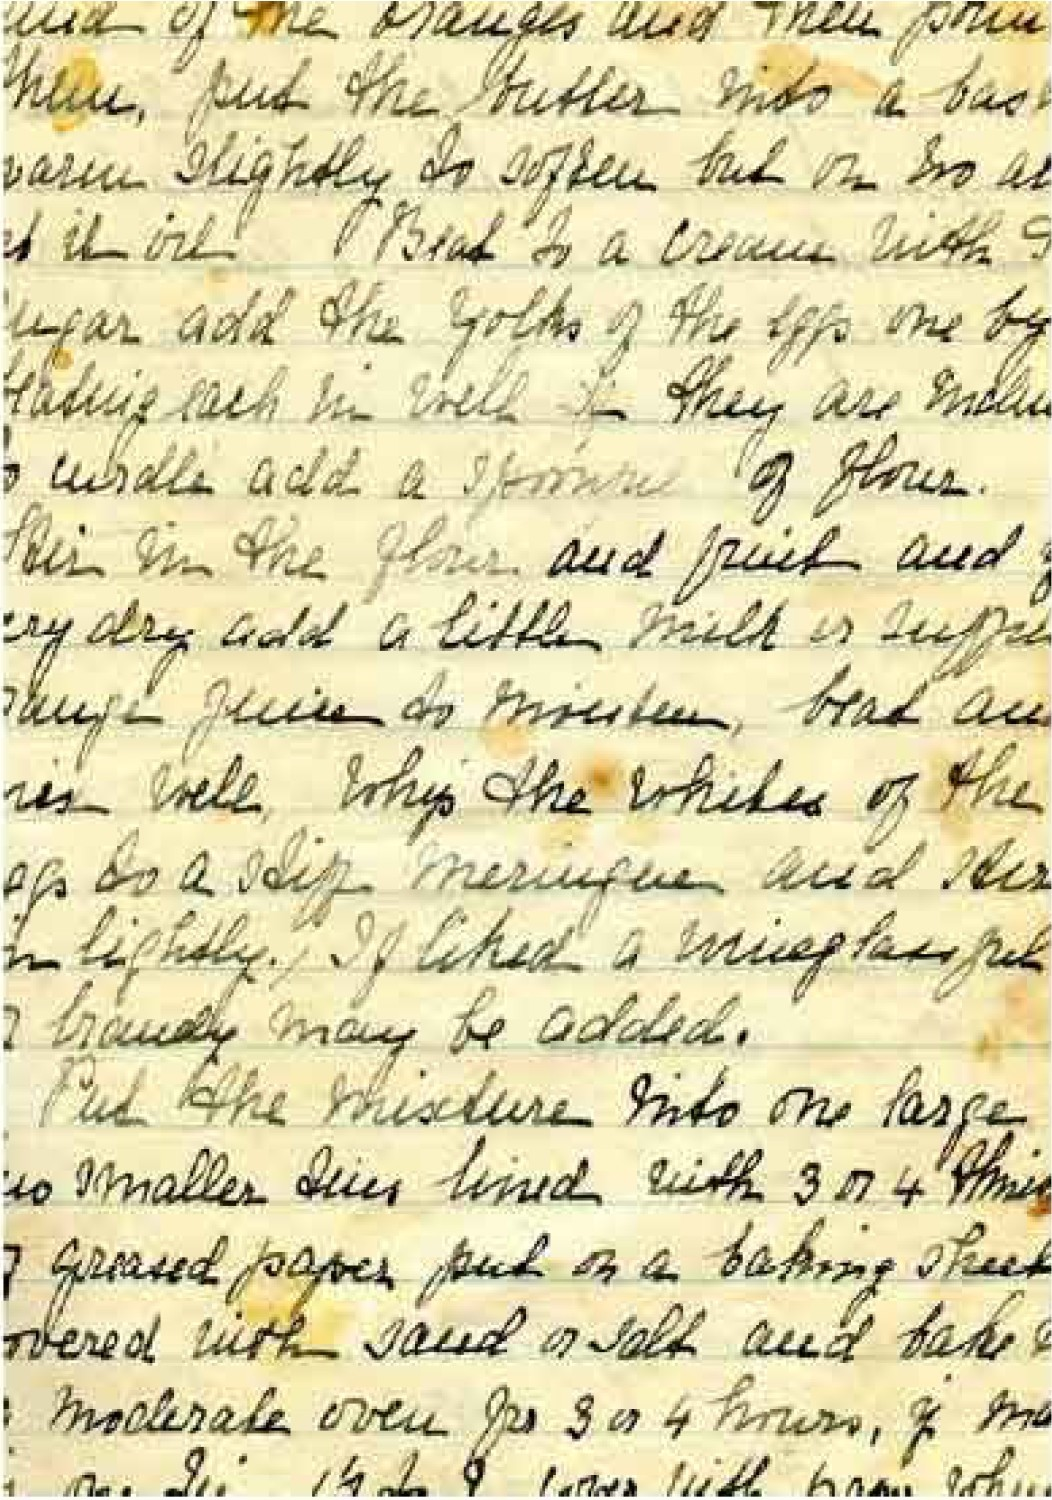 of the oranges and then
put the butter into a
slightly to soften but on no
it oil Beat to a cream with
ugar add the yolks of the eggs one by
each in well if they are
curdle add a of flour.
Stir in the flour and fruit and
ery dry add a little milk or
range juice to moisten, beat
well, Whip the whites of the
ggs to a stiff meringue and stir
in lightly. If liked a wineglassful
brandy may be added.
Put the mixture into one large
smaller tins lined with 3 or 4
greased paper put on a baking sheet
overed with sand or salt and bake
moderate oven for 3 or 4 hours, if